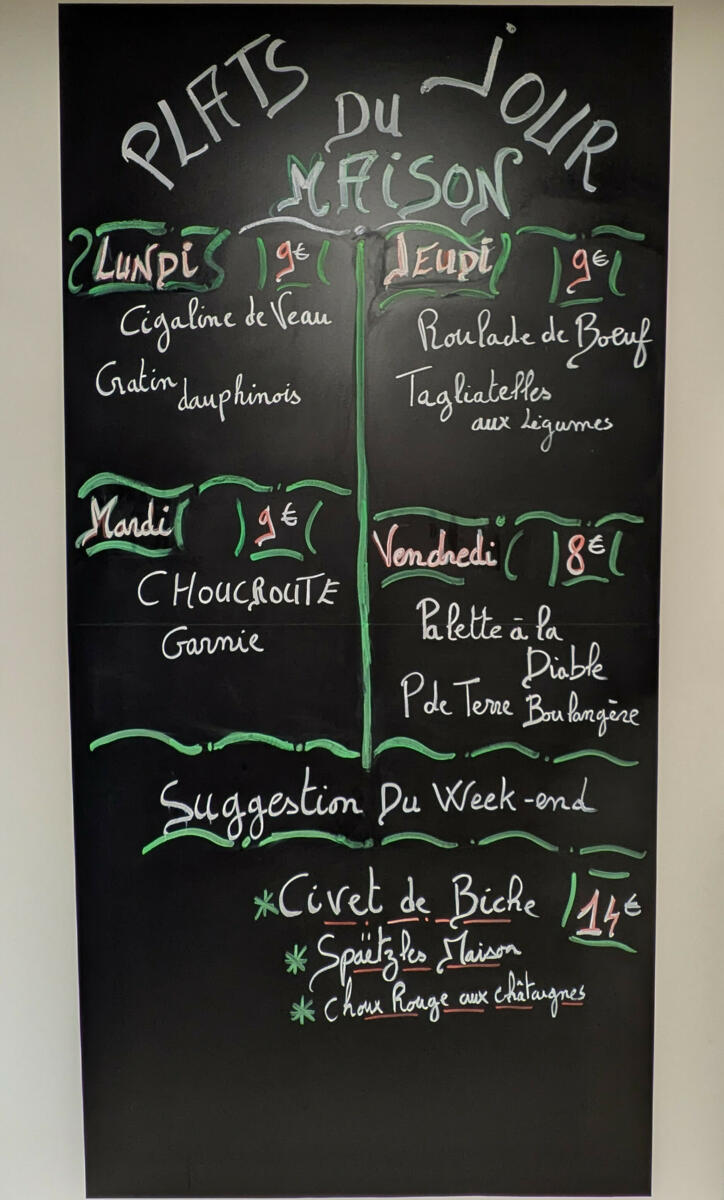 PLATS DU JOUR
MAISON
LUNDI 9€
Cigaline de Veau
Gratin dauphinois
Mardi 9€
CHOUCROUTE
Garnie
JEUDI 9€
Roulade de Bœuf
Tagliatelles
aux Légumes
Vendredi 8€
Palette à la
Diable
P de Terre Boulangère
Suggestion Du Week-end
* Civet de Biche 14€
* Spaëtzles Maison
* Choux Rouge aux châtaignes